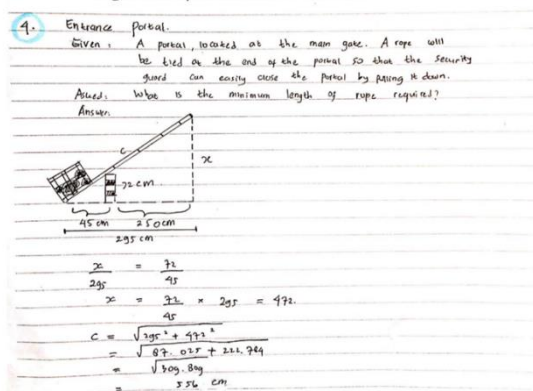 4. Entrance portal.
Given : A portal, located at the main gate. A rope will
be tied at the end of the portal so that the security
guard can easily close the portal by pulling it down.
Asked: What is the minimum length of rope required?
Answer:
c
x
72 cm
45 cm 250 cm
295 cm
x/295 = 72/45
x = 72/45 × 295 = 472.
c = √295² + 472²
= √87.025 + 222.784
= √309.809
= 556 cm